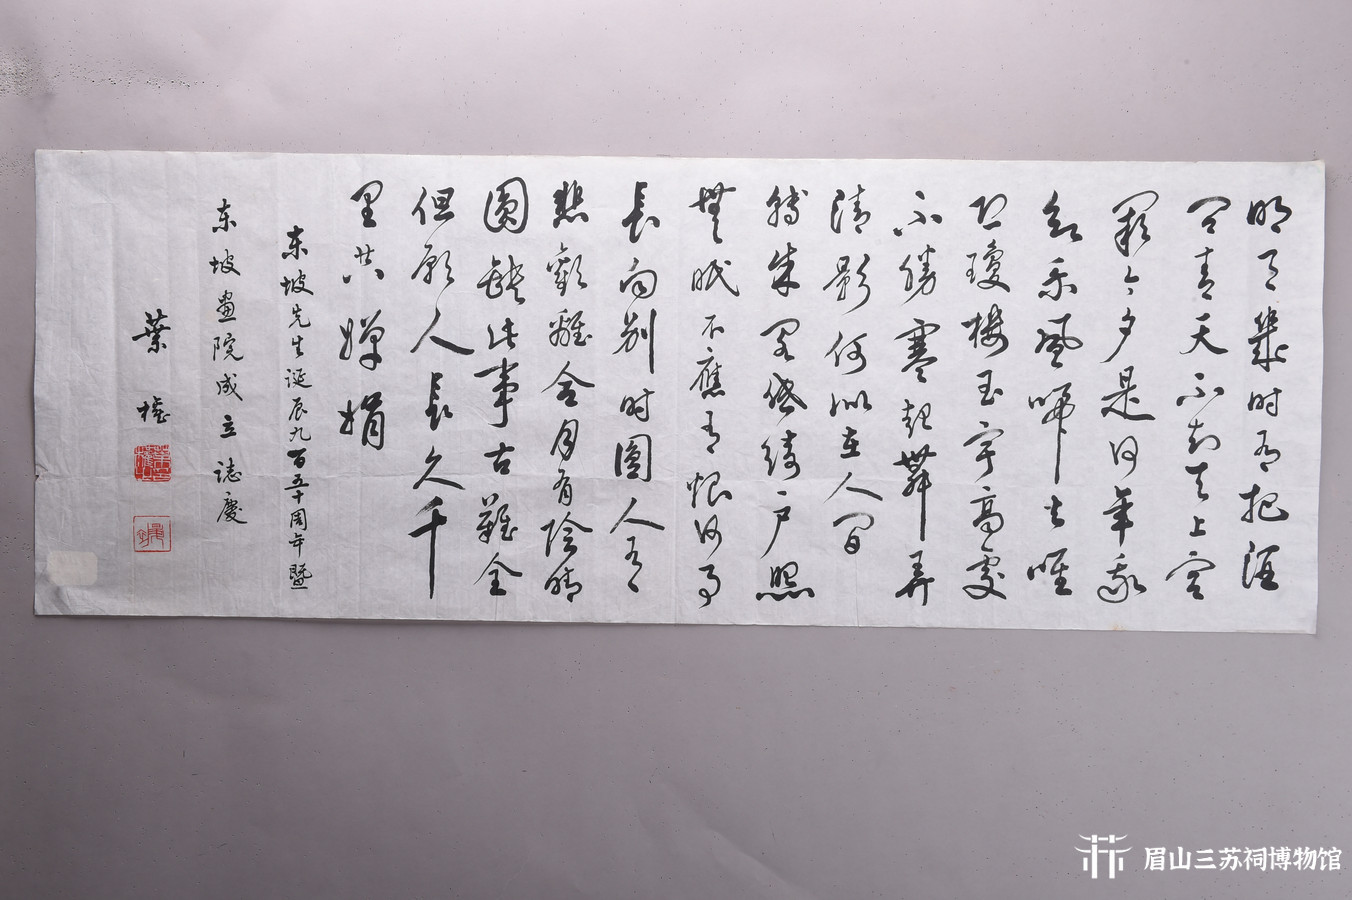 明月幾时有把酒
问青天不知天上宫
阙今夕是何年我
欲乘風歸去唯
恐瓊樓玉宇高處
不勝寒起舞弄
清影何似在人间
轉朱阁低绮户照
無眠不應有恨何事
長向别时圆人有
悲歡離合月有陰晴
圆缺此事古難全
但願人長久千
里共嬋娟
东坡先生诞辰九百五十周年暨
东坡畫院成立誌慶
葉
眉山三苏祠博物馆